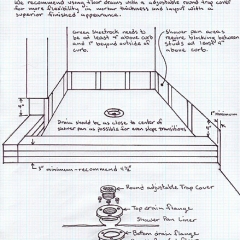 We recommend using floor drains with a adjustable round trap cover
for more flexibility in mortar thickness and layout with a
superior finished appearance.
Green sheetrock needs to
be at least 4" above curb
and 1" beyond outside of
curb.
Shower pan areas
require blocking between
studs at least 4"
above curb.
Drain should be as close to center of
shower pan as possible for even slope transitions
minimum - recommend
Round adjustable Trap Cover
Top drain flange
Shower Pan Liner
Bottom drain flange